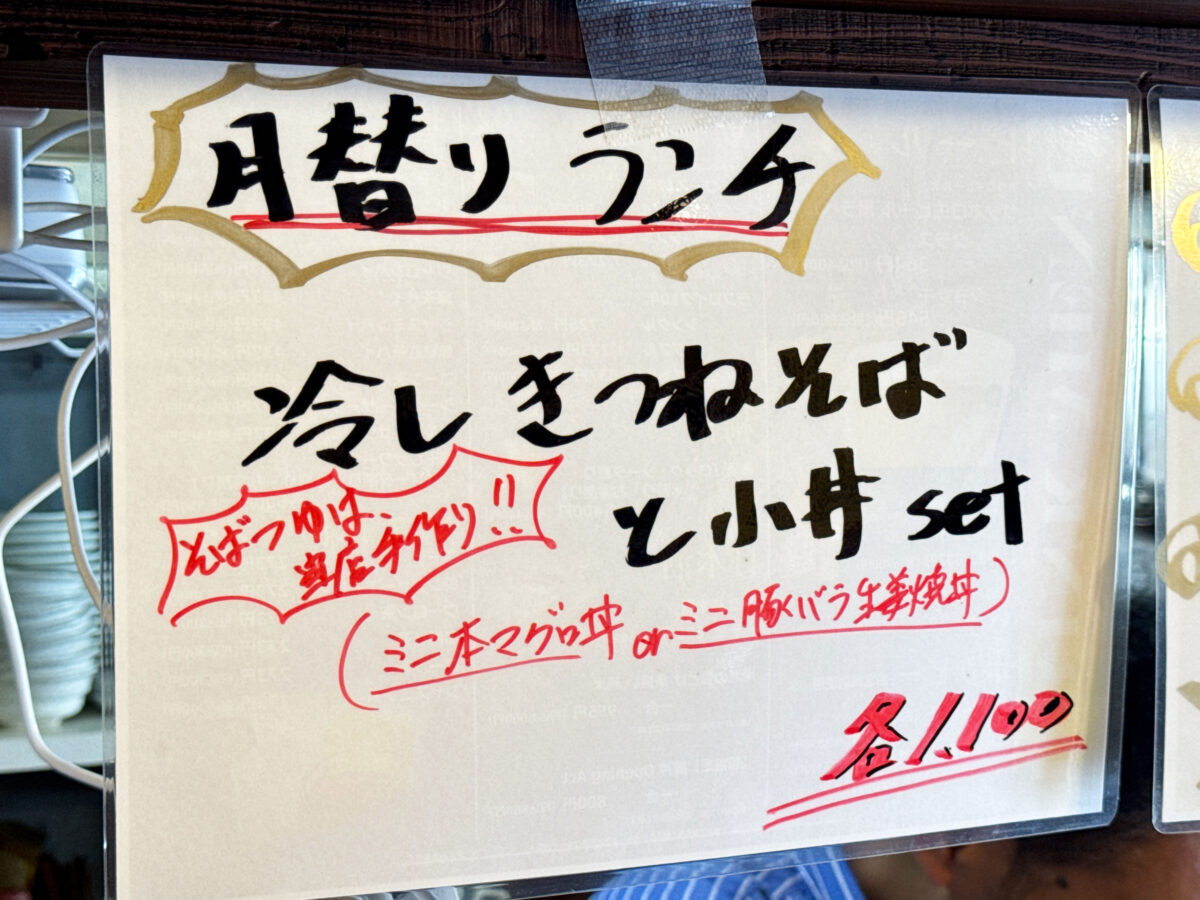 月替り ランチ
冷し きつねそば
と小丼 set
そばつゆは、
当店手作り!!
(ミニ本マグロ丼 or ミニ豚バラ生姜焼丼)
各1.100